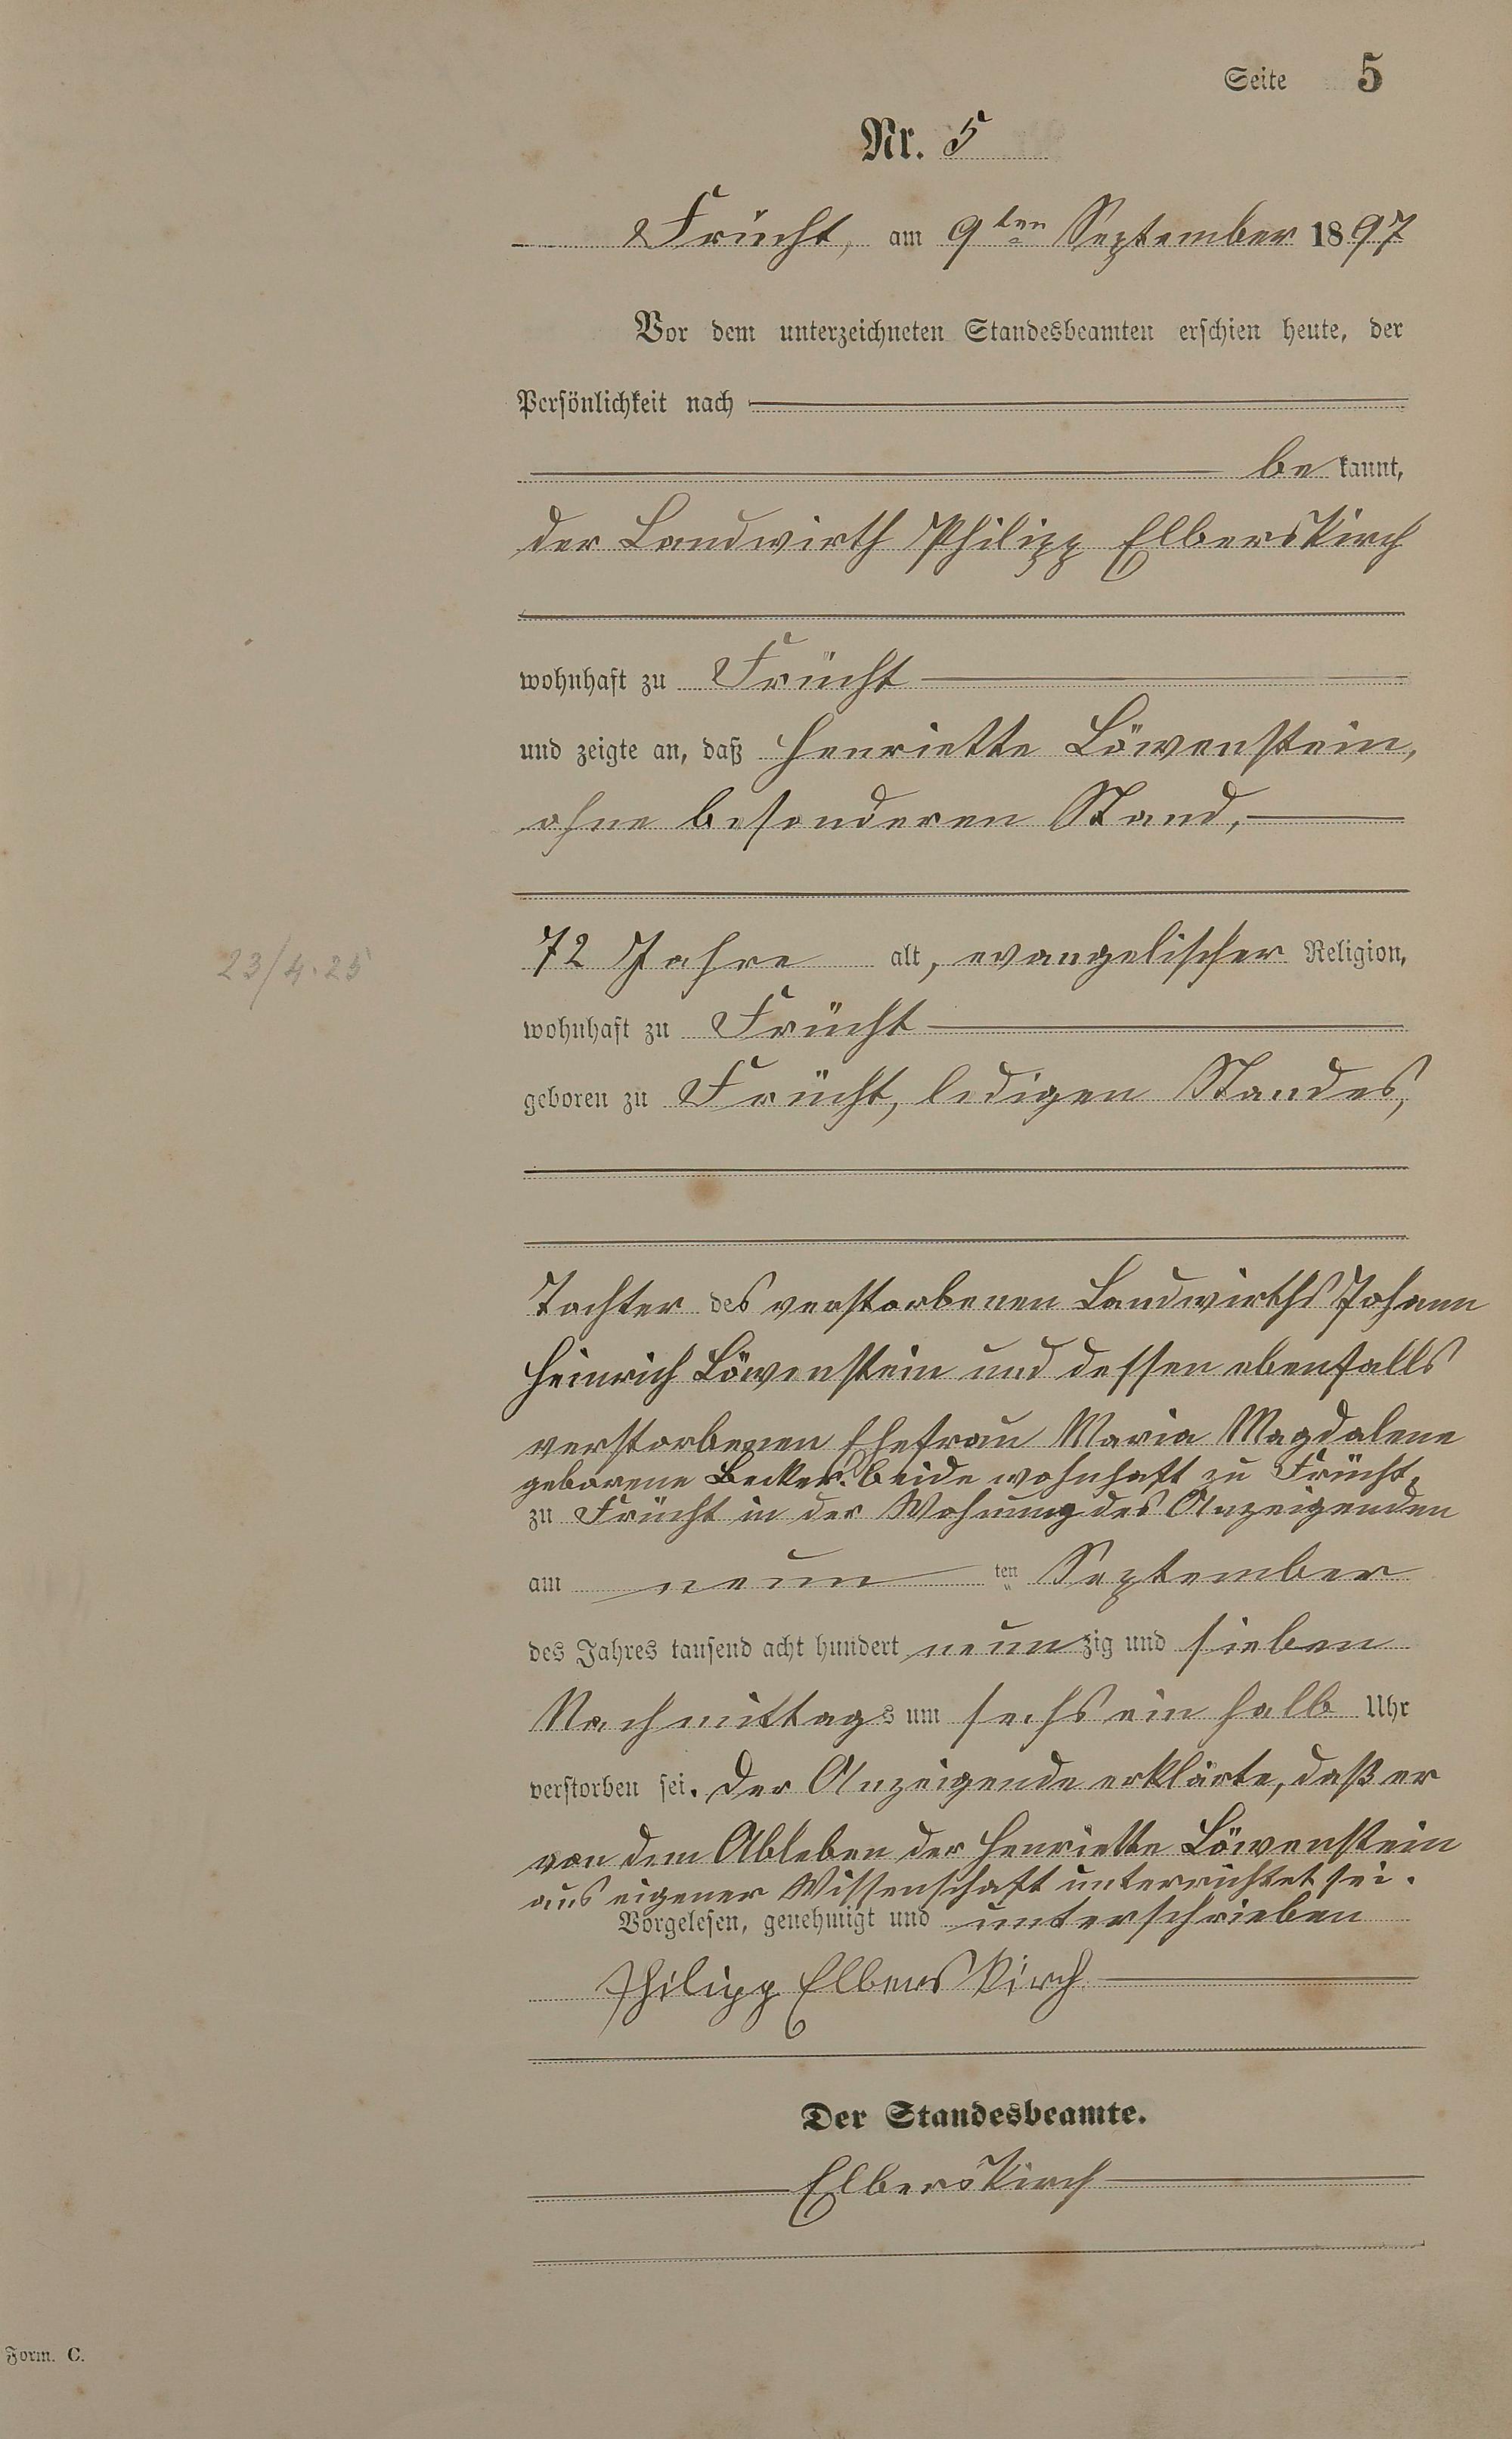 Seite 5
Nr. 5
Frücht, am 9ten September 1897
Vor dem unterzeichneten Standesbeamten erschien heute, der
Persönlichkeit nach
be kannt,
der Landwirth Philipp Elberskirch
wohnhaft zu Frücht
und zeigte an, daß Henriette Löwenstein,
ohne besonderen Stand,
72 Jahre alt, evangelischer Religion,
23/4.25
wohnhaft zu Frücht
geboren zu Frücht, ledigen Standes,
Tochter des verstorbenen Landwirths Johann
Heinrich Löwenstein und dessen ebenfalls
verstorbenen Ehefrau Maria Magdalene
geborene Becker. beide wohnhaft zu Frücht,
zu Frücht in der Wohnung des Anzeigenden
am neun ten September
des Jahres tausend acht hundert neun zig und sieben
Nachmittags um sechs ein halb Uhr
verstorben sei. Der Anzeigende erklärte, daß er
von dem Ableben der Henriette Löwenstein
aus eigener Wissenschaft unterrichtet sei.
Vorgelesen, genehmigt und unterschrieben
Philipp Elberskirch
Der Standesbeamte.
Elberskirch
Form. C.